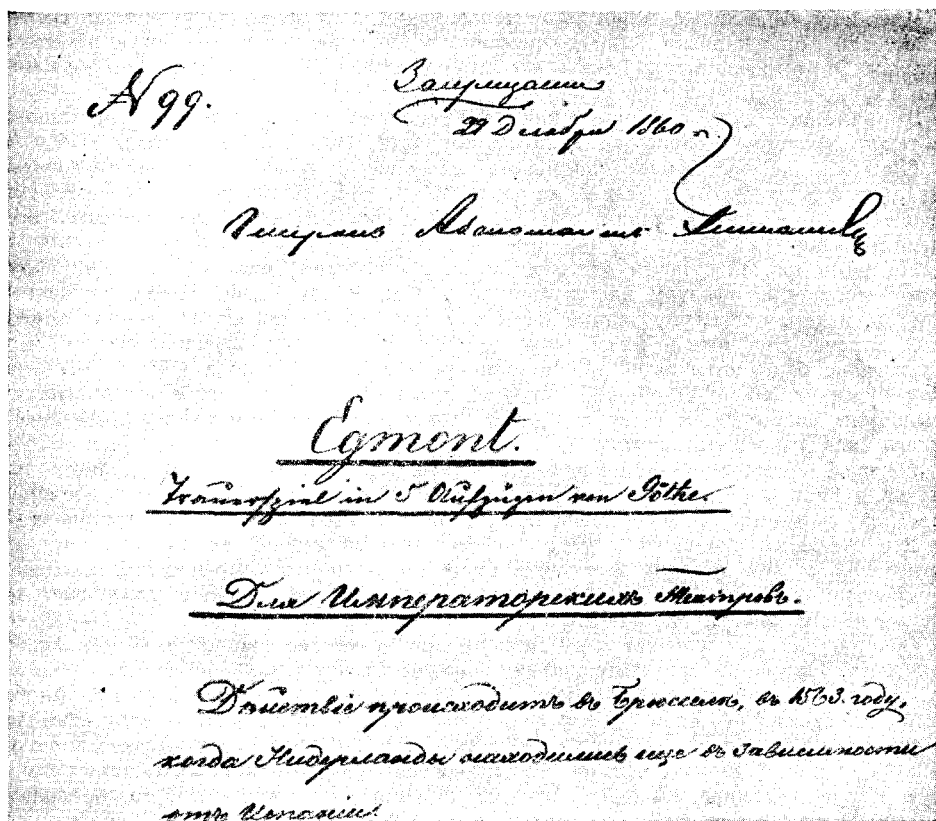 N 99.
Запрещается
29 Декабря 1860 г.
Генералъ Адъютантъ Тимашевъ
Egmont.
Trauerspiel in 5 Aufzügen von Göthe.
Для Императорскихъ Театровъ.
Дѣйствіе происходитъ въ Брюсселѣ, въ 1563. году,
когда Нидерланды находились еще въ зависимости
отъ Испаніи.